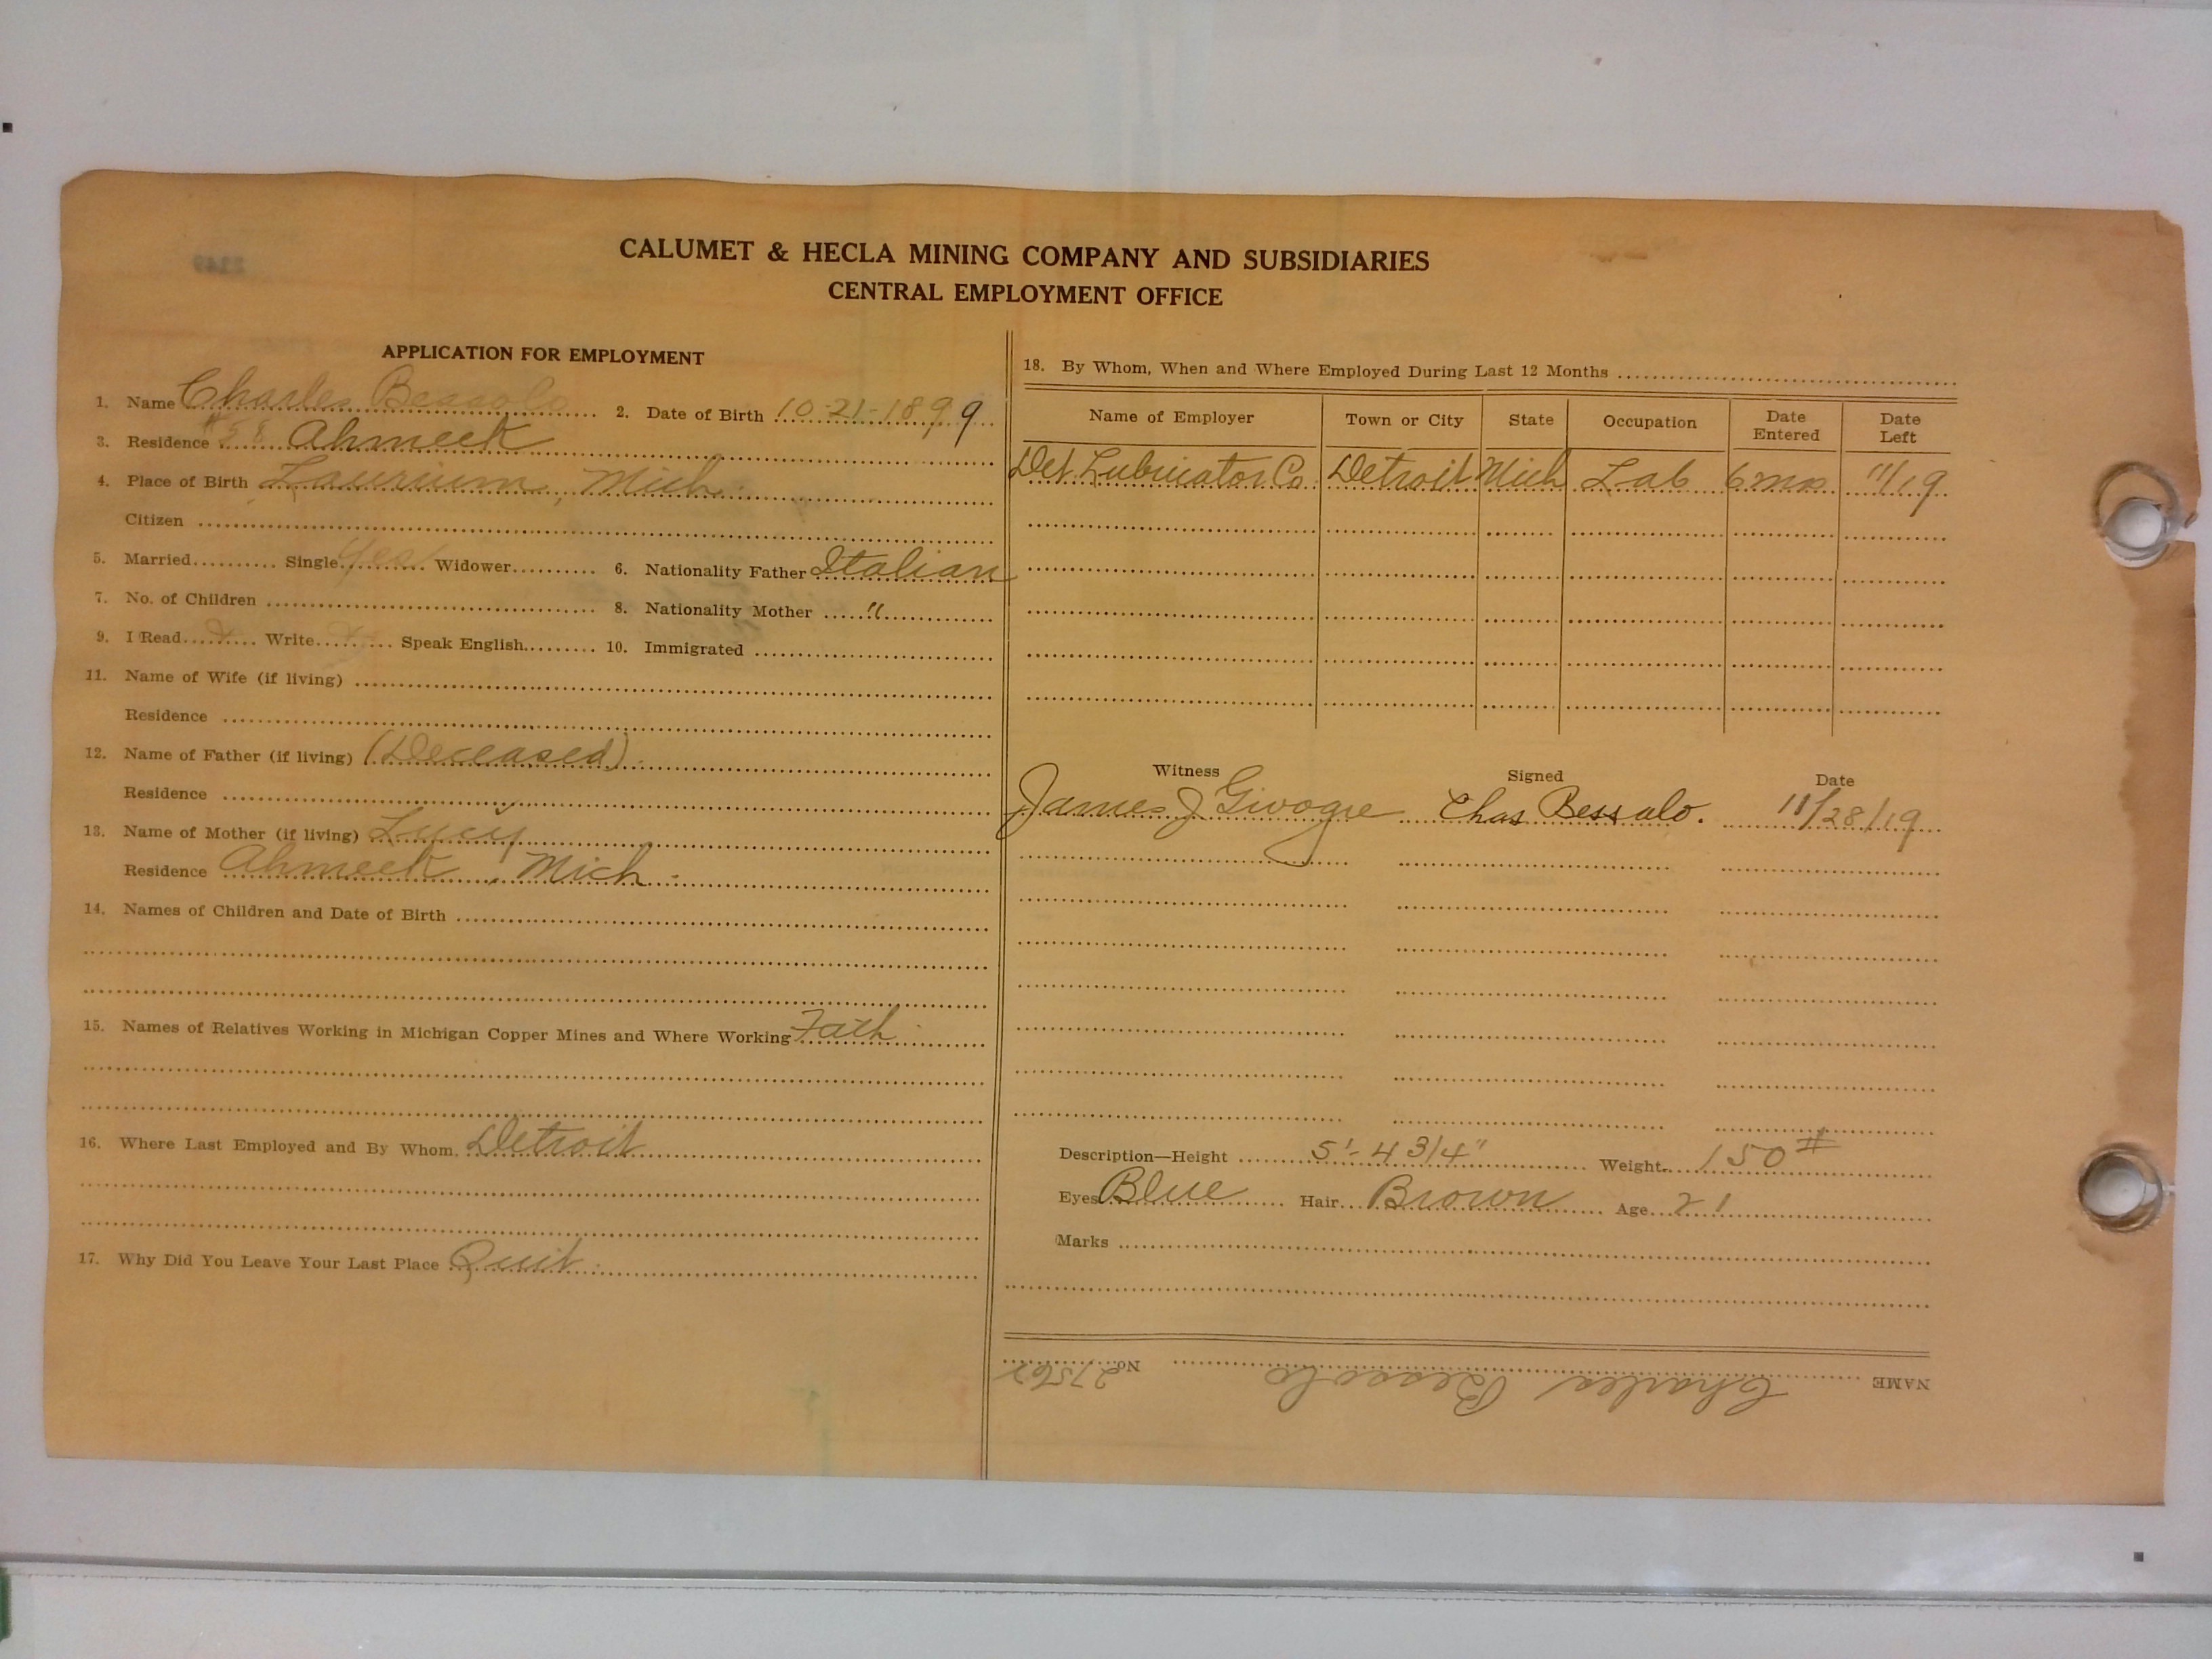 CALUMET & HECLA MINING COMPANY AND SUBSIDIARIES
CENTRAL EMPLOYMENT OFFICE
APPLICATION FOR EMPLOYMENT
1. Name Charles Bessolo 2. Date of Birth 10-21-1899
3. Residence #58 Ahmeek
4. Place of Birth Laurium, Mich.
Citizen
5. Married Single Yes Widower 6. Nationality Father Italian
7. No. of Children 8. Nationality Mother "
9. I Read Write Speak English 10. Immigrated
11. Name of Wife (if living)
Residence
12. Name of Father (if living) (Deceased)
Residence
13. Name of Mother (if living) Lucy
Residence Ahmeek, Mich.
14. Names of Children and Date of Birth
15. Names of Relatives Working in Michigan Copper Mines and Where Working Fath.
16. Where Last Employed and By Whom Detroit
17. Why Did You Leave Your Last Place Quit.
18. By Whom, When and Where Employed During Last 12 Months
Name of Employer Town or City State Occupation Date Entered Date Left
Det. Lubricator Co. Detroit Mich Lab 6 mos. 11/19
Witness Signed Date
James J Chas Bessolo. 11/28/19
Description—Height 5'-4 3/4" Weight 150#
Eyes Blue Hair Brown Age 21
Marks
NAME Charles Bessolo No. 27562